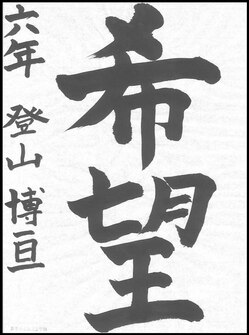 希望
六年 登山 博亘